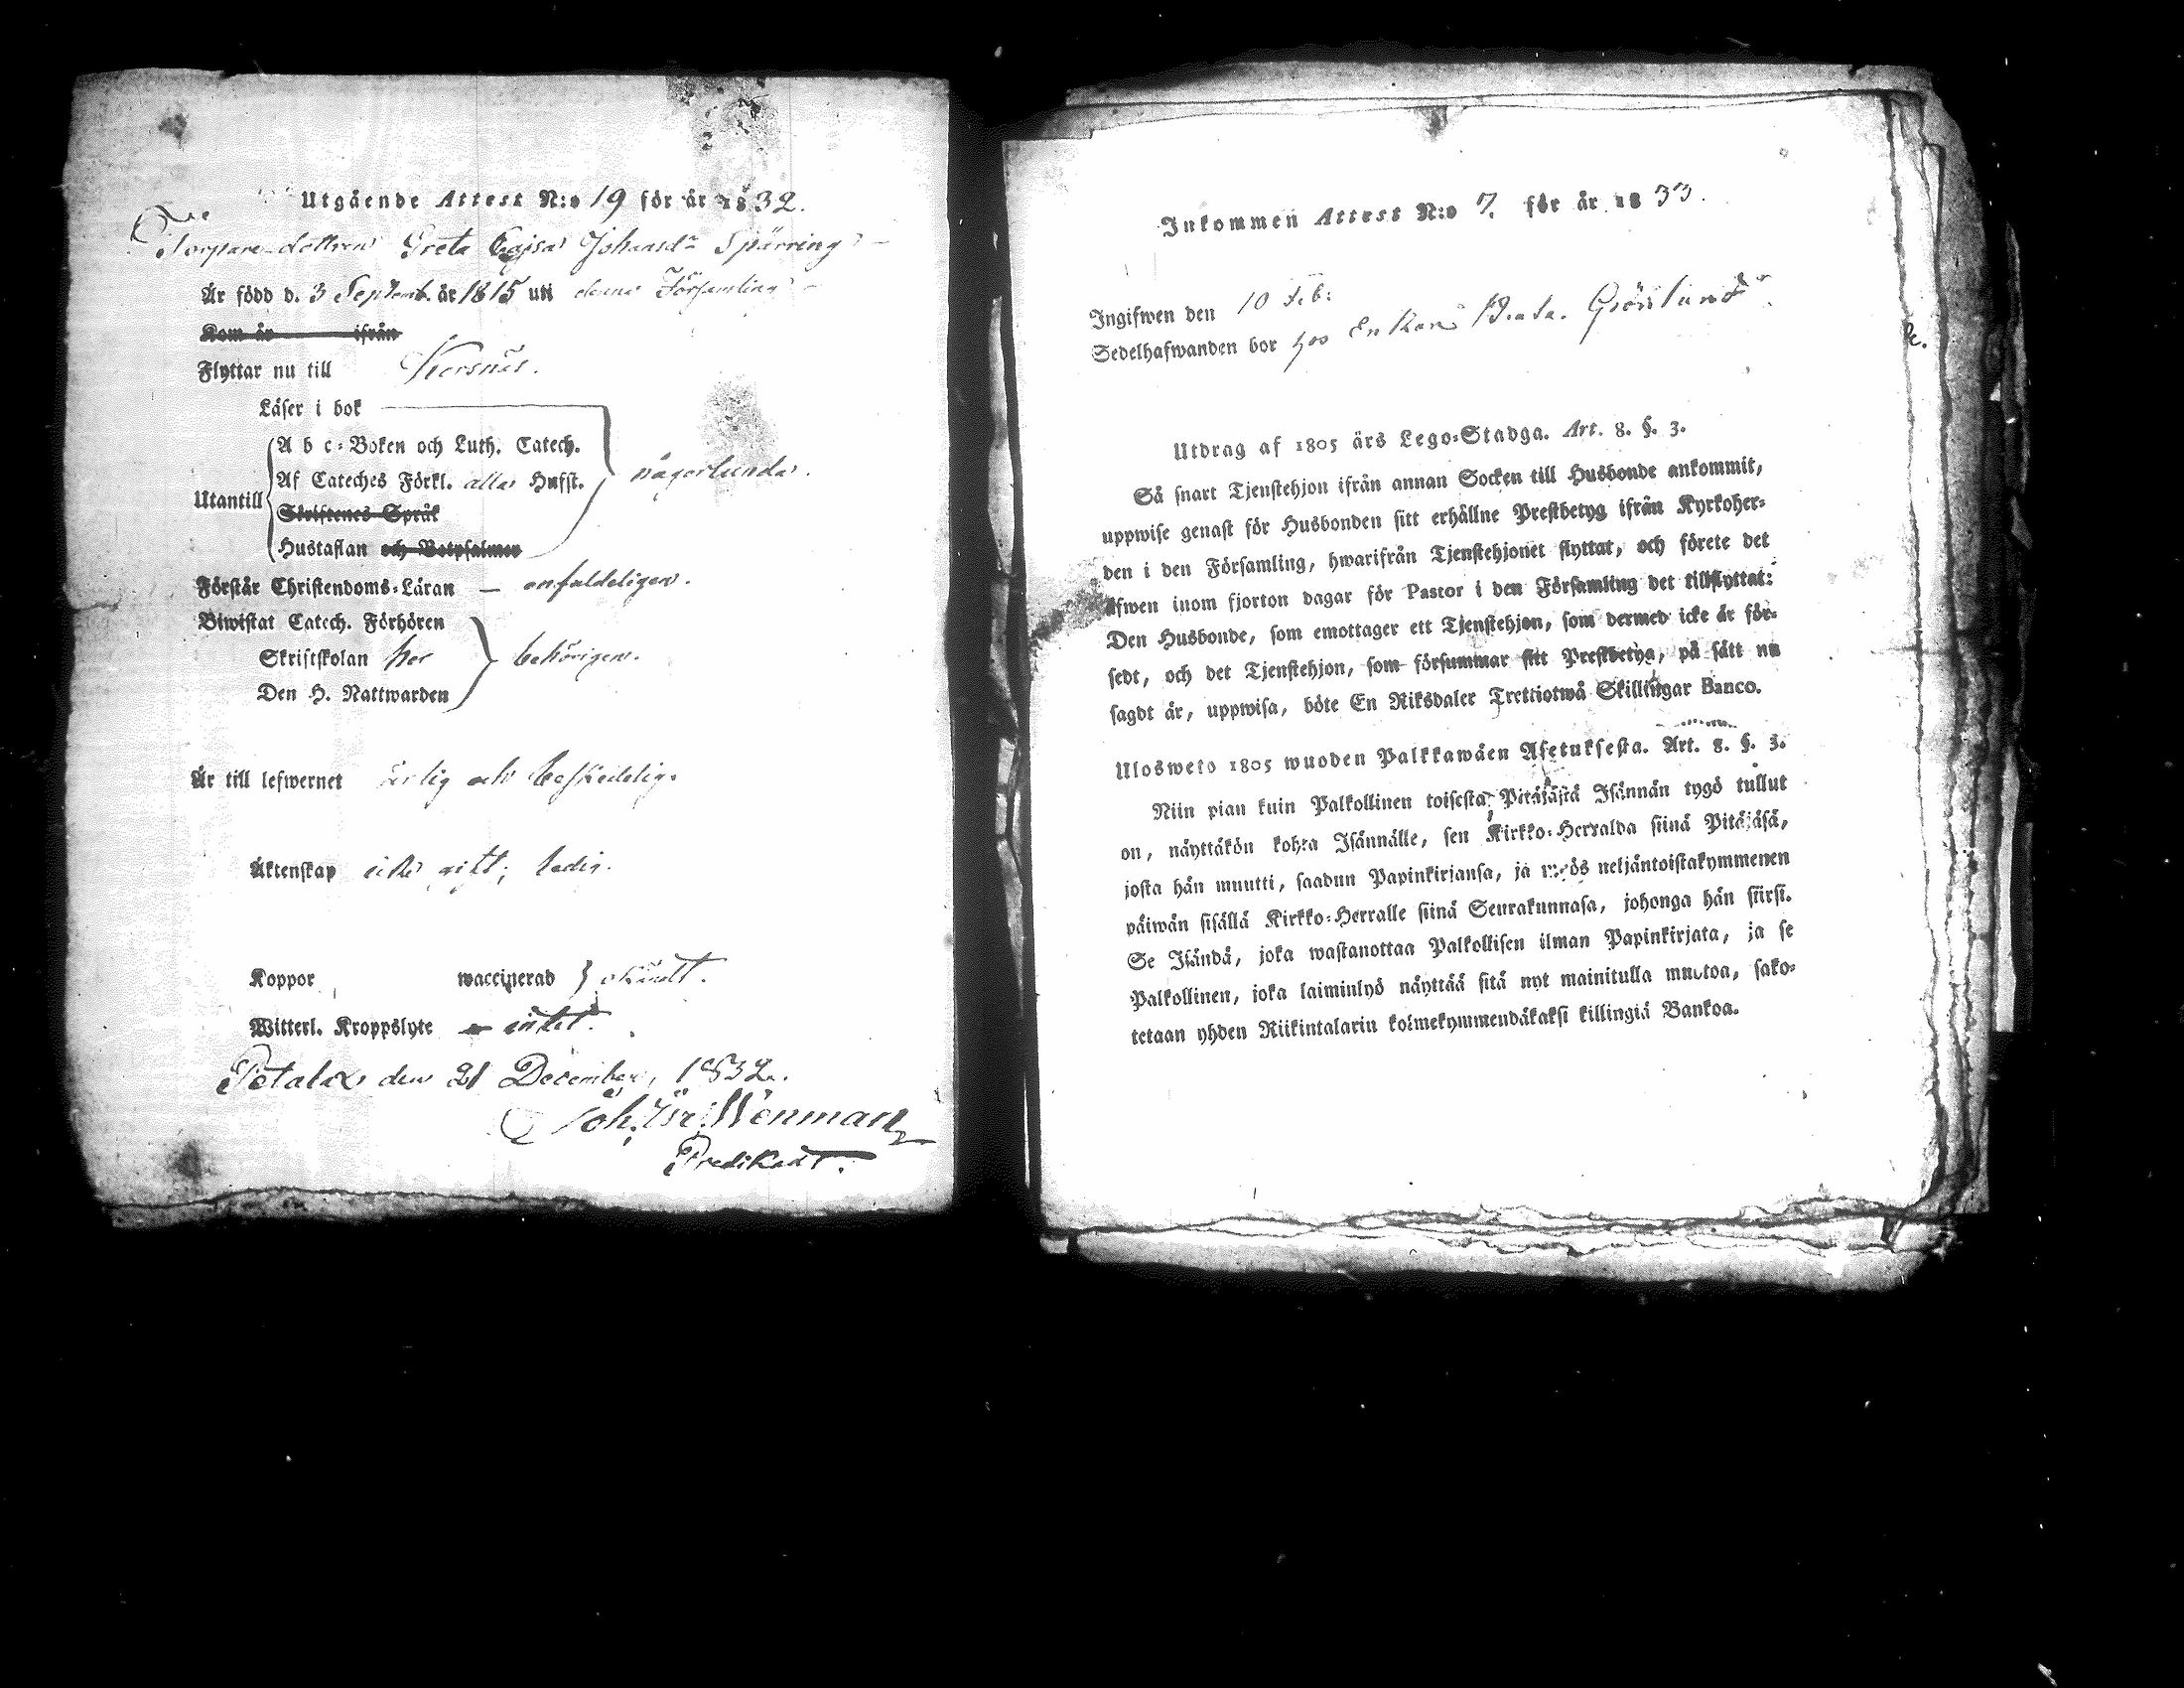 Utgående Attest N:o 19 för år 1832.
Torpare dottren Greta Cajsa Johansdr Spärring
Är född d. 3 Septemb. år 1815 uti denna Församling
Kom år ifrån
Flyttar nu till Korsnäs.
Läser i bok
A b c-Boken och Luth. Catech.
Af Cateches Förkl. alla Hufst. någorlunda.
Utantill
Skriftenes Språk
Hustaflan och Botpsalmer
Förstår Christendoms-Läran — enfaldeligen.
Biwistat Catech. Förhören
Skriftskolan här behörigen.
Den H. Nattwarden
Är till lefwernet ärlig och beskedelig.
Äktenskap icke gift, ledig.
Koppor waccinerad okändt.
Witterl. Kroppslyte intet.
Petalax den 21 December, 1832.
Joh. Isr. Wenman
Predikant.
Inkommen Attest N:o 7. för år 1833.
Ingifwen den 10 Feb:
Sedelhafwanden bor hos Enkan Beata Grönlund
Utdrag af 1805 års Lego-Stadga. Art. 8. §. 3.
Så snart Tjenstehjon ifrån annan Socken till Husbonde ankommit,
uppwise genast för Husbonden sitt erhållne Prestbetyg ifrån Kyrkoher-
den i den Församling, hwarifrån Tjenstehjonet flyttat, och förete det
äfwen inom fjorton dagar för Pastor i den Församling det tillflyttat:
Den Husbonde, som emottager ett Tjenstehjon, som dermed icke är för-
sedt, och det Tjenstehjon, som försummar sitt Prestbetyg, på sätt nu
sagdt är, uppwisa, böte En Riksdaler Trettiotwå Skillingar Banco.
Ulosweto 1805 wuoden Palkkawäen Asetuksesta. Art. 8. §. 3.
Niin pian kuin Palkollinen toisesta Pitäjästä Isännän tygö tullut
on, näyttäkön kohta Isännälle, sen Kirkko-Herralda siinä Pitäjäsä,
josta hän muutti, saadun Papinkirjansa, ja myös neljäntoistakymmenen
päiwän sisällä Kirkko-Herralle siinä Seurakunnasa, johonga hän siirsi.
Se Isändä, joka wastanottaa Palkollisen ilman Papinkirjata, ja se
Palkollinen, joka laiminlyö näyttää sitä nyt mainitulla muotoa, sako-
tetaan yhden Riikintalarin kolmekymmendäkaksi killingiä Bankoa.